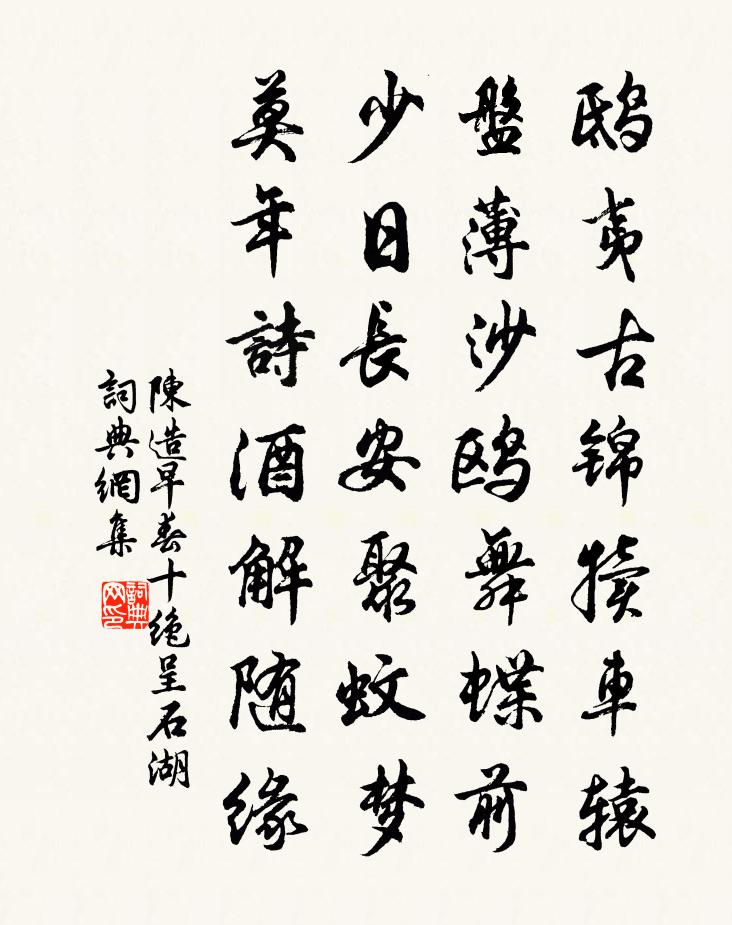 鸱夷古锦犊車辕
盤薄沙鸥舞蝶前
少日長安聚蚊梦
莫年詩酒解随缘
陳造早春十绝呈石湖
詞典網集
詞典网印